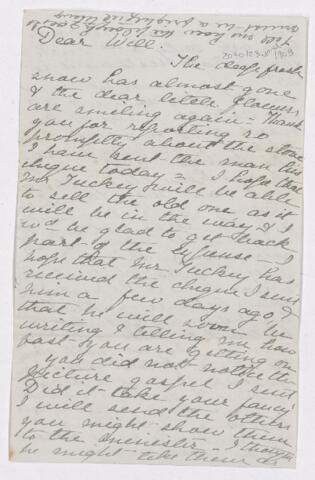 Dear Will.
The deep fresh
snow has almost gone
& the dear little flowers
are smiling again - Thank
you for reporting so
promptly about the stove
I have sent the man his
cheque today - I hope that
Mr Tuckey will be able
to sell the old one as it
will be in the way & I
wd be glad to get back
part of the expense - I
hope that Mr Tuckey has
received the cheque I sent
him a few days ago &
that he will soon be
writing & telling me how
fast you are getting on
you did not notice the
picture gospel I sent
Did it take your fancy
I will send the others
you might show them
to the minister - I thought
he might take them as